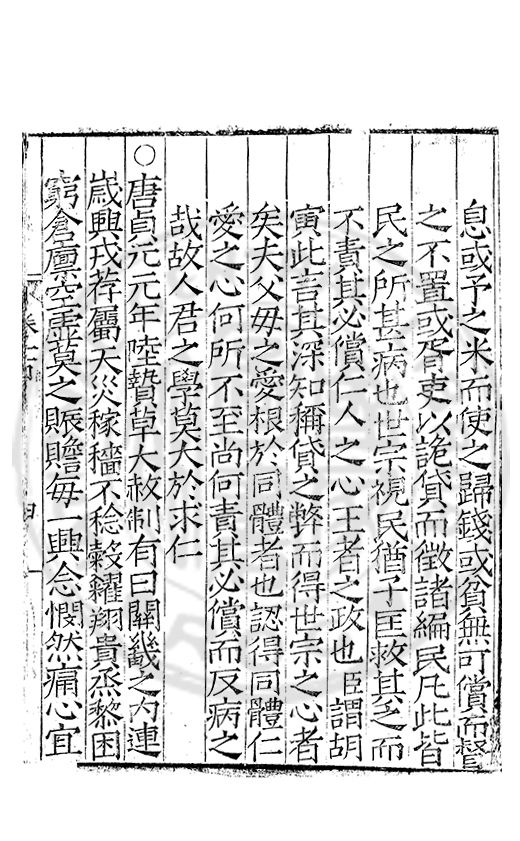 息或予之米而使之歸錢或貧無可償而督
之不置或胥吏以詭貸而徵諸編民凡此皆
民之所甚病也世宗視民猶子匡救其乏而
不責其必償仁人之心王者之政也臣謂胡
寅此言其深知稱貸之弊而得世宗之心者
矣夫父母之愛根於同體者也認得同體仁
愛之心何所不至尚何責其必償而反病之
哉故人君之學莫大於求仁
○唐貞元元年陸贄草大赦制有曰關畿之内連
歲興戎荐屬天災稼穡不稔穀糴翔貴烝黎困
窮倉廩空虛莫之賑贍每一興念憫然痛心宜